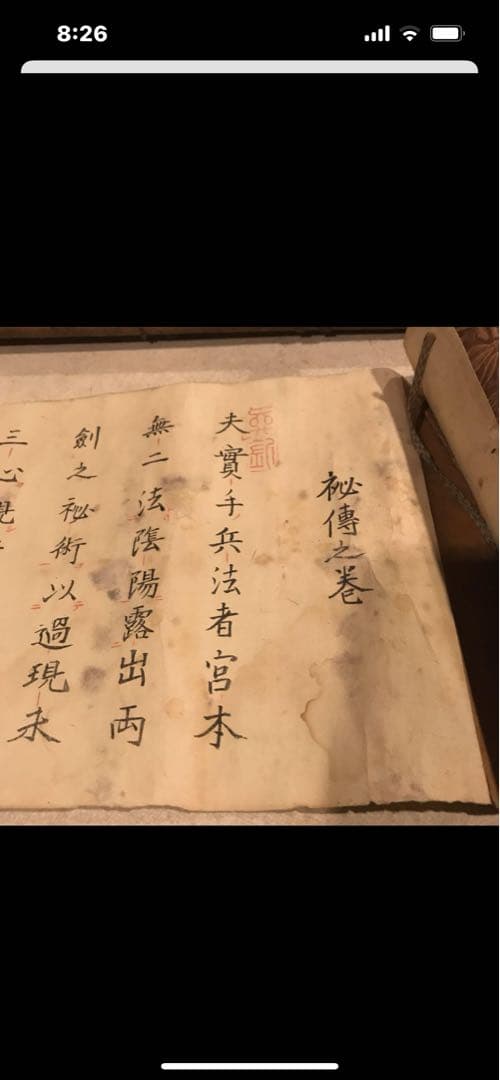 8:26
祕傳之巻
夫實手兵法者宮本
無二法陰陽露出両
劍之祕術以過現未
三心